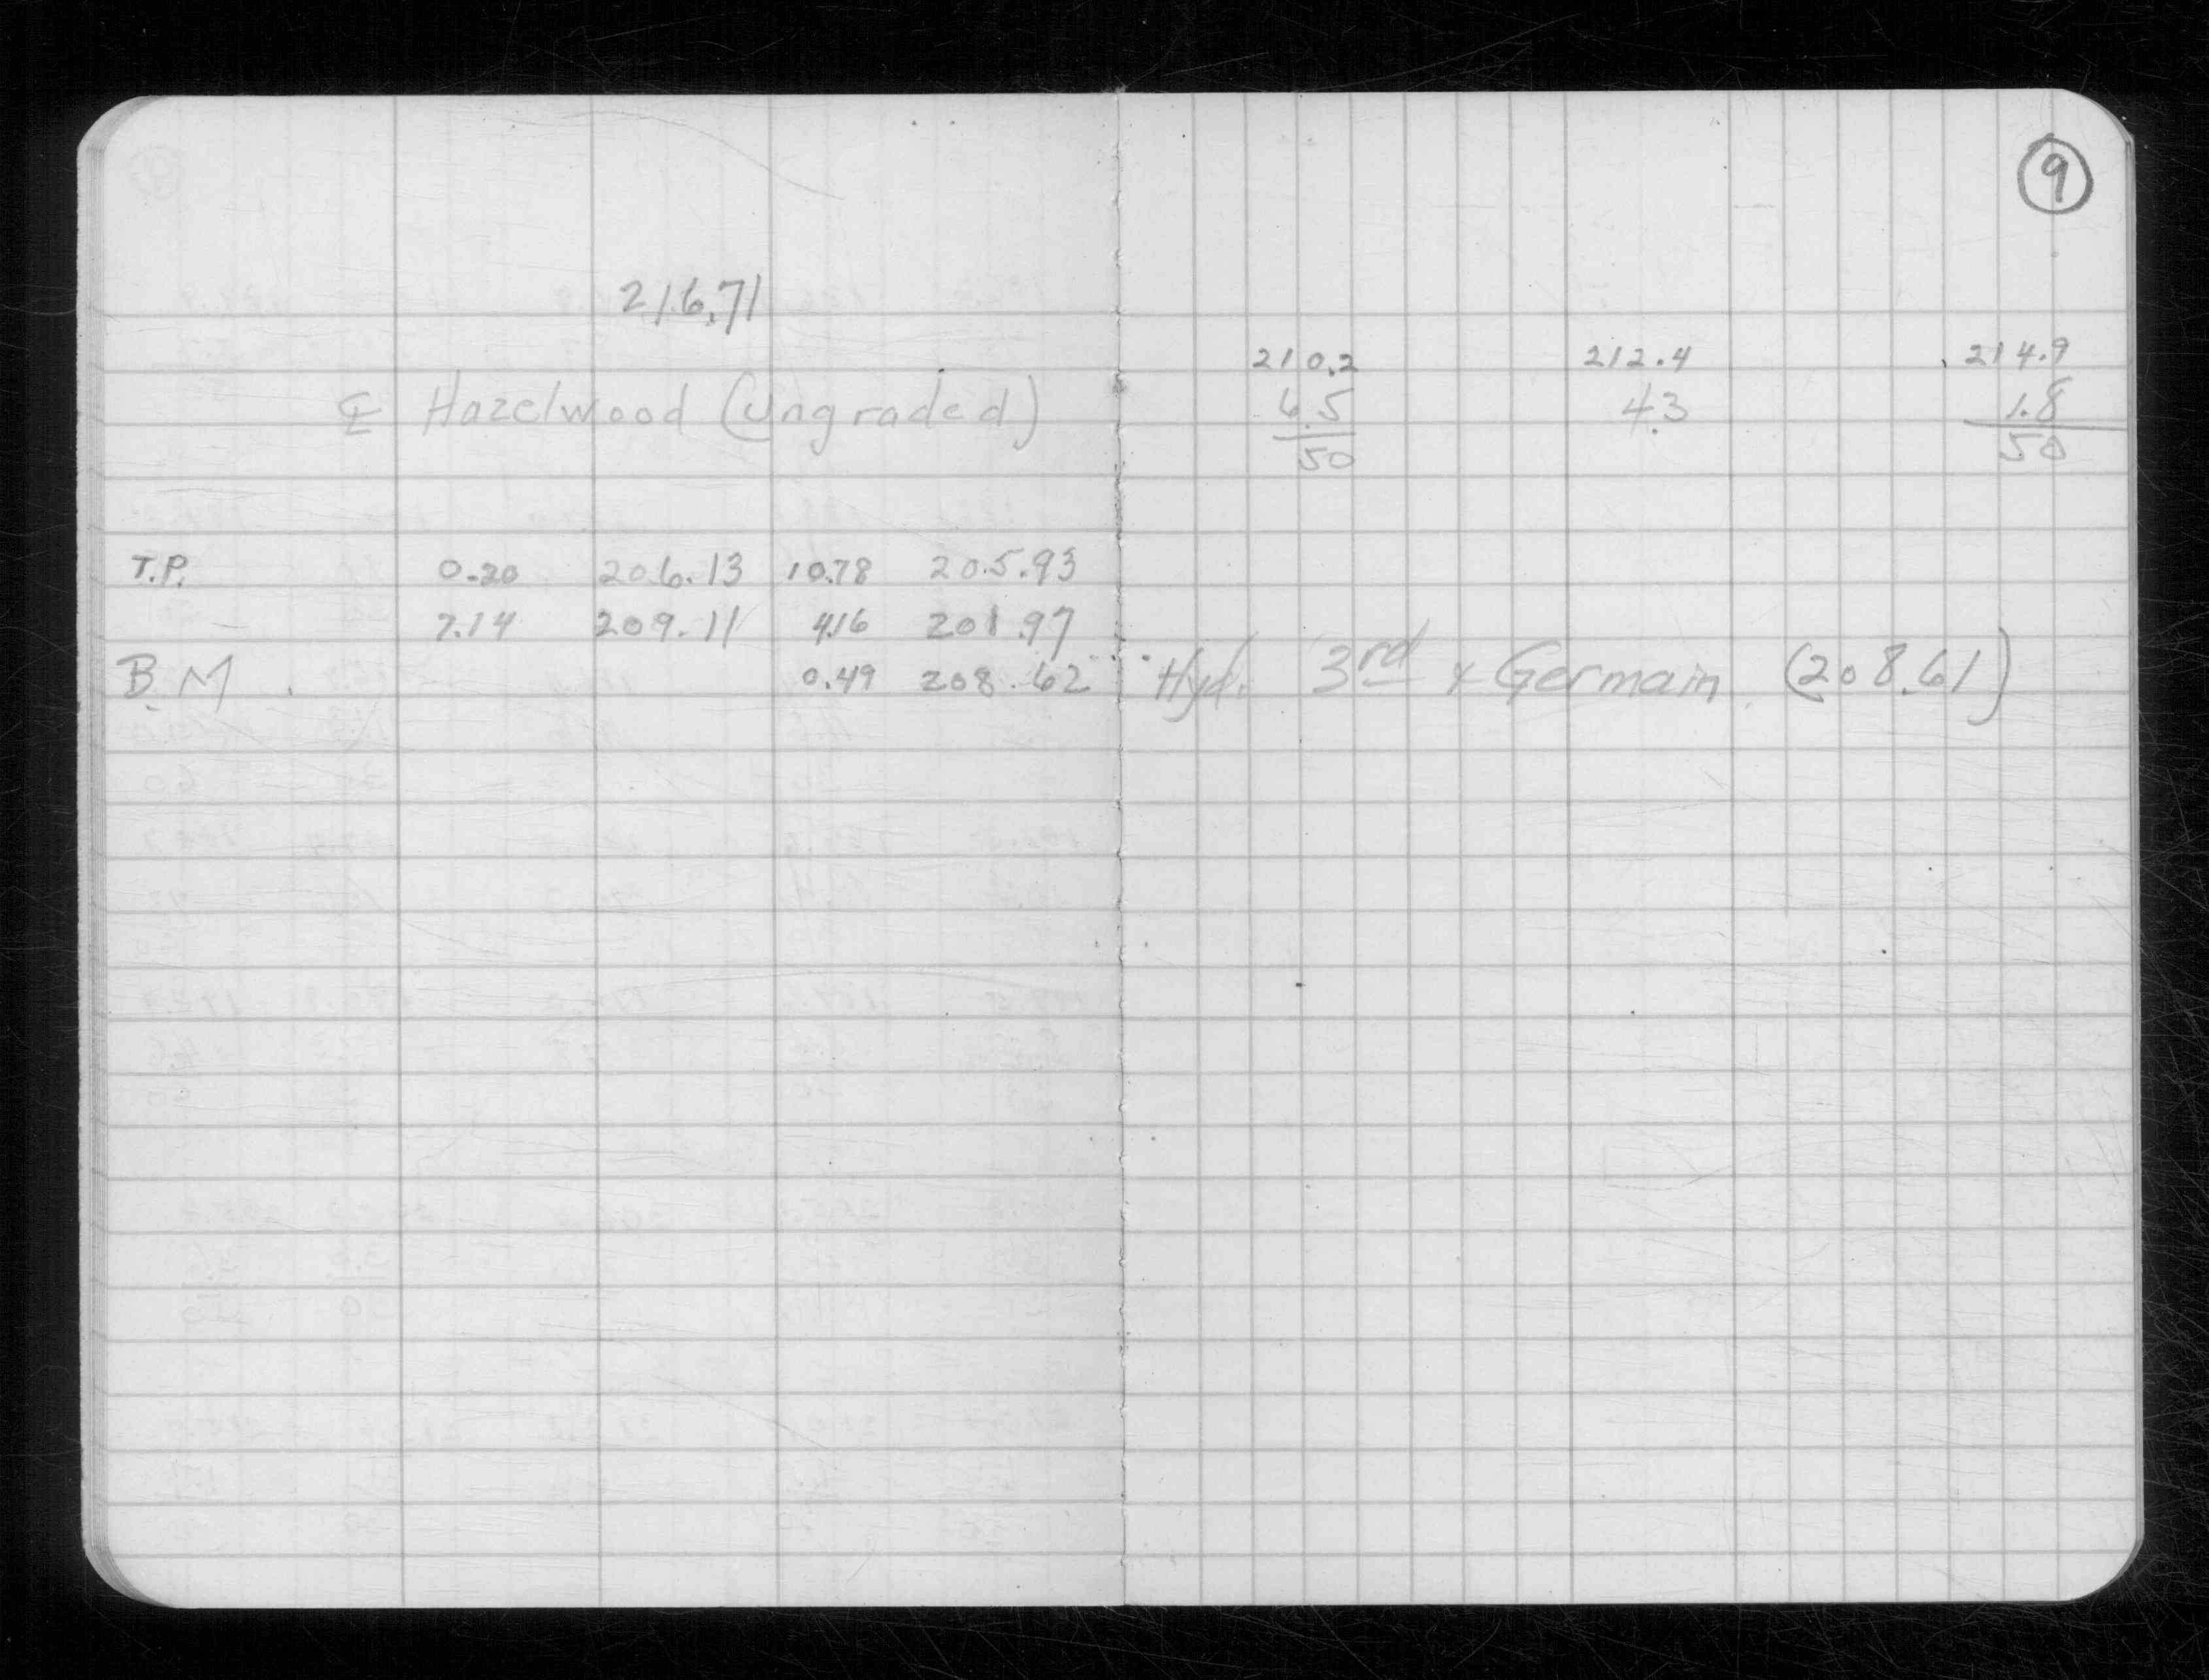 9
216.71
210.2 212.4 214.9
℄ Hazelwood (ungraded) 6.5 4.3 1.8
50 50
T.P. 0.20 206.13 10.78 205.93
7.14 209.11 4.16 201.97
B.M. 0.49 208.62 Hyd. 3rd & Germain (208.61)